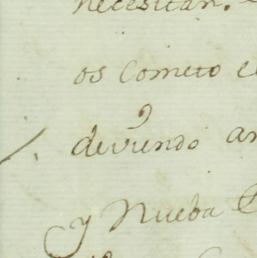 necesitan.
os cometo e
deviendo an
y Nueba